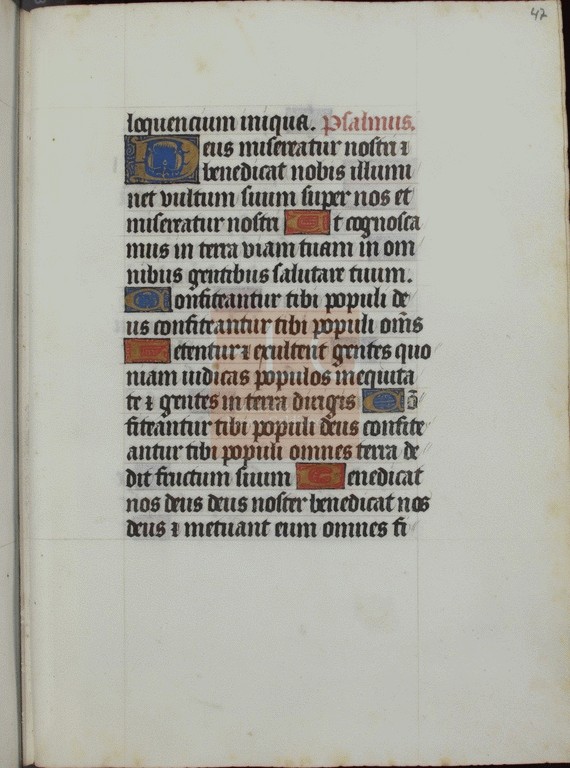 47
loquencium iniqua. Psalmus.
Deus misereatur nostri ⁊
benedicat nobis illumi
net vultum suum super nos et
misereatur nostri Ut cognosca
mus in terra viam tuam in om
nibus gentibus salutare tuum.
Confiteantur tibi populi de
us confiteantur tibi populi om̄s
Letentur ⁊ exultent gentes quo
niam iudicas populos inequita
te ⁊ gentes in terra dirigis Cō
fiteantur tibi populi deus confite
antur tibi populi omnes terra de
dit fructum suum Benedicat
nos deus deus noster benedicat nos
deus ⁊ metuant eum omnes fi